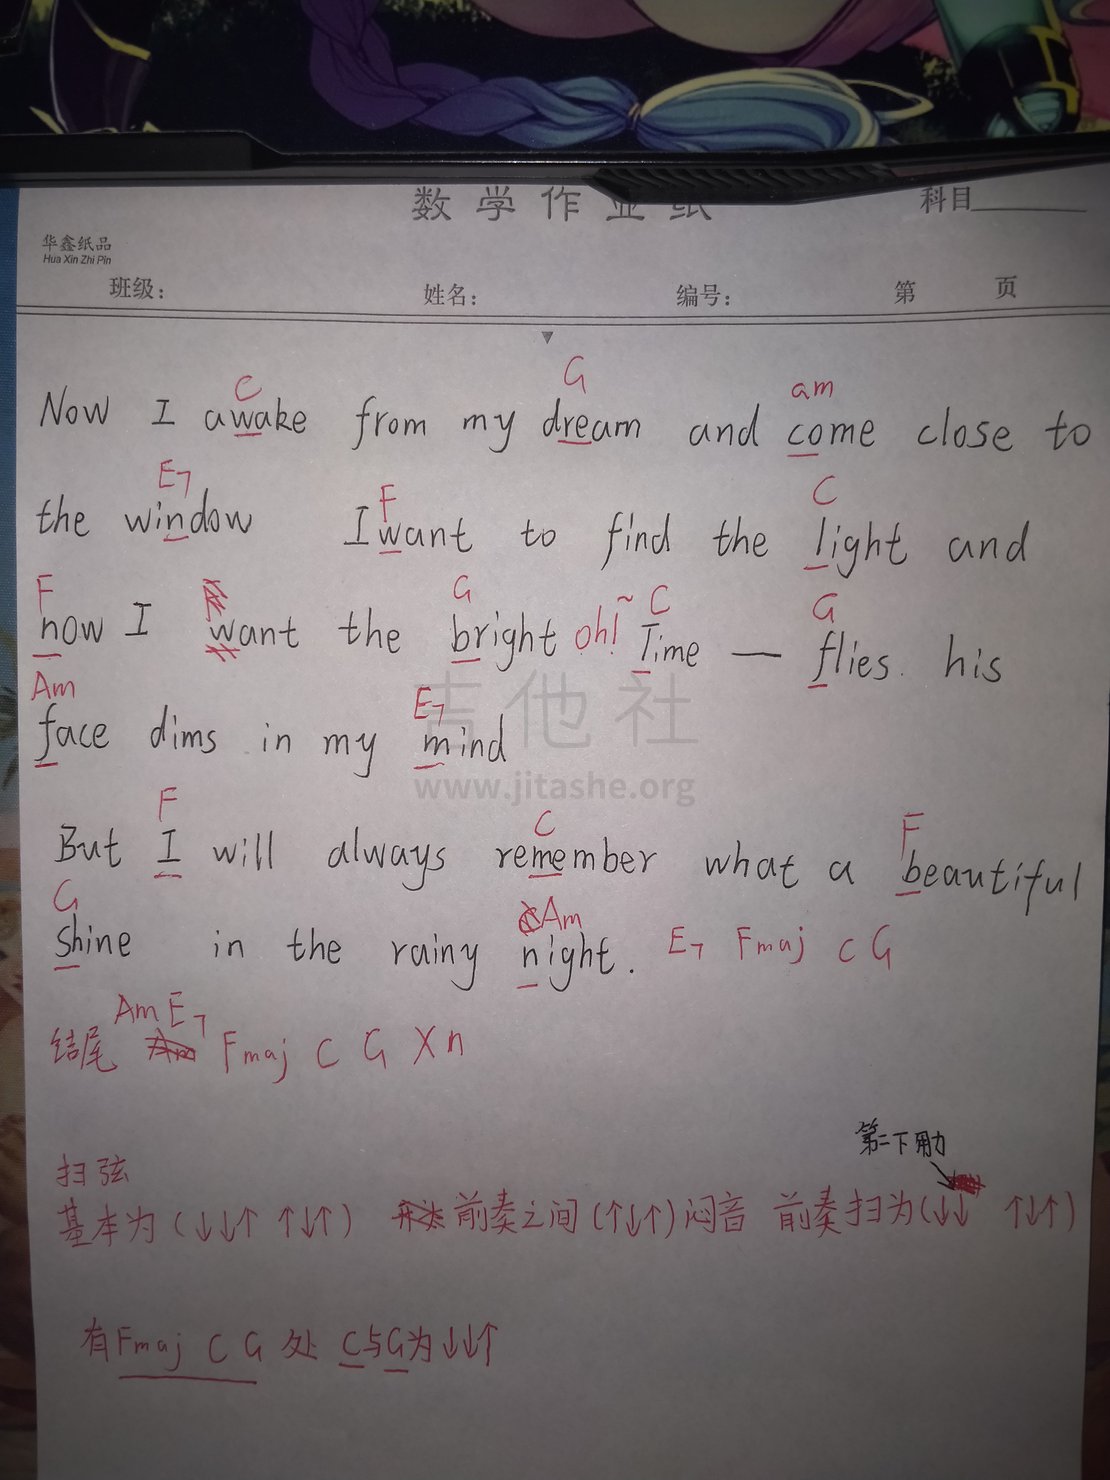 数学作业纸 科目
华鑫纸品
Hua Xin Zhi Pin
班级： 姓名： 编号： 第 页
C G am
Now I awake from my dream and come close to
E7 F C
the window I want to find the light and
F G C G
now I want the bright oh!~ Time — flies. his
Am E7
face dims in my mind
吉他社
www.jitashe.org
F C F
But I will always remember what a beautiful
G Am
shine in the rainy night. E7 Fmaj C G
Am E7
结尾 Fmaj C G X n
第二下用力
扫弦
基本为(↓↓↑ ↑↓↑) 前奏之间(↑↓↑)闷音 前奏扫为(↓↓ ↑↓↑)
有Fmaj C G 处 C与G为↓↓↑